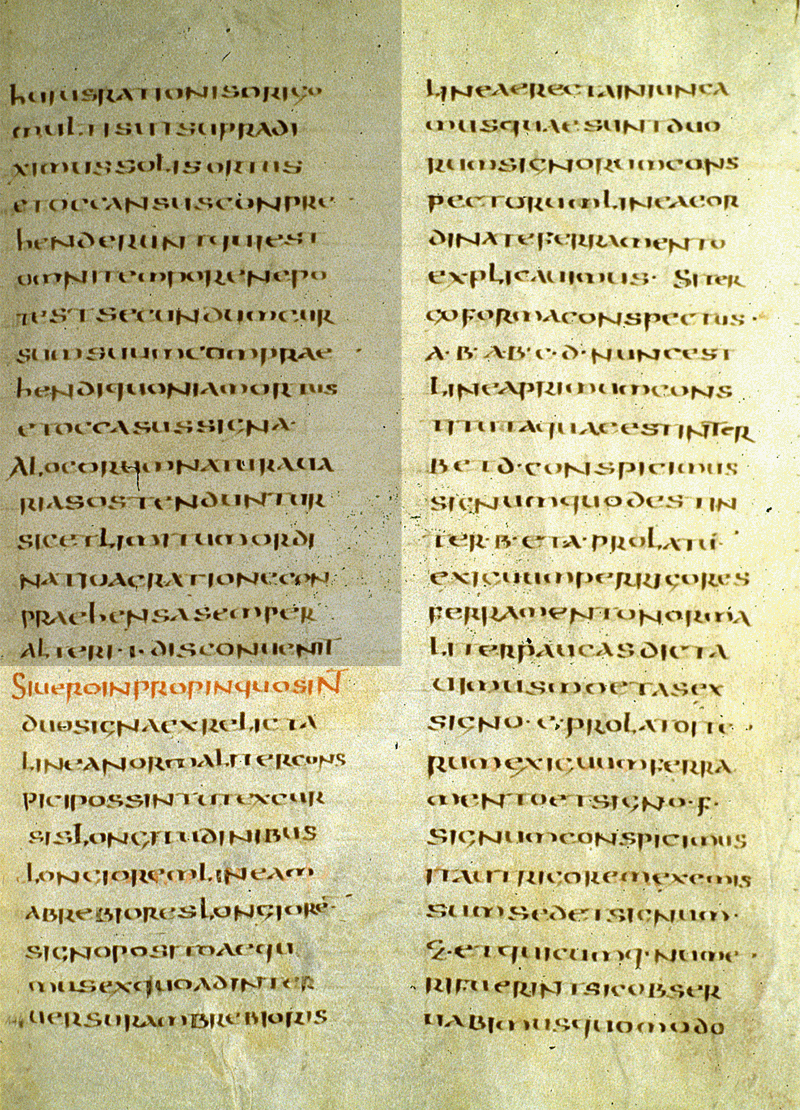 huiusrationisorigo
multisutsupradi
ximussolisortus
etoccansusconpre
henderuntquiest
omnitemporenepo
testsecundumcur
sumsuumcomprae
hendiquoniamortus
etoccasussigna·
alocorumnaturaua
riasostenduntur
sicetlimitumordi
natioaerationecon
praehensasemper
alteri·i·disconuenit
Siueroinpropinquosint
duosignaexrelicta
lineanormalitercons
picipossintutexcur
sislongitudinibus
longioremlineam
abrebioreslongiore·
signopostmaequ
musexquoadinter
uersurambrebioris
lineaerectainiunga
musquaesuntduo
rumsignorumcons
pectorumlineacor
dinateferramento
explicauimus· Siter
goformaconspectus·
a·b·ab·c·d·nuncest
lineaprimumcons
titutaquaeestinter
betd·conspicimus
signumquodestin
ter·b·eta·prolatu
exiguumperrigores
ferramentonorma
literpaucasdicta
uimusmoetasex
signo·e·prolatoite·
rumexiguumferra
mentoetsigno·f·
signumconspicimus
pautrigoremexemis
sumsedetsignum·
g·etquicumq·nume·
rifuerintsicobser
uabimusquomodo